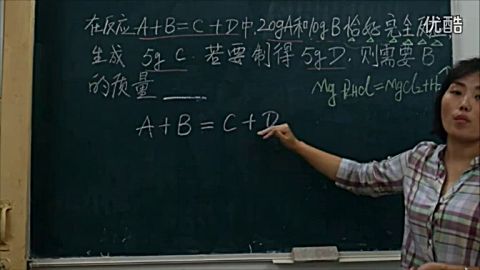 优酷
在反应A+B=C+D中,20gA和10gB恰好完全反
生成 5g C. 若要制得5gD, 则需要B
的质量
Mg HCl=MgCl₂+H
A+B=C+D